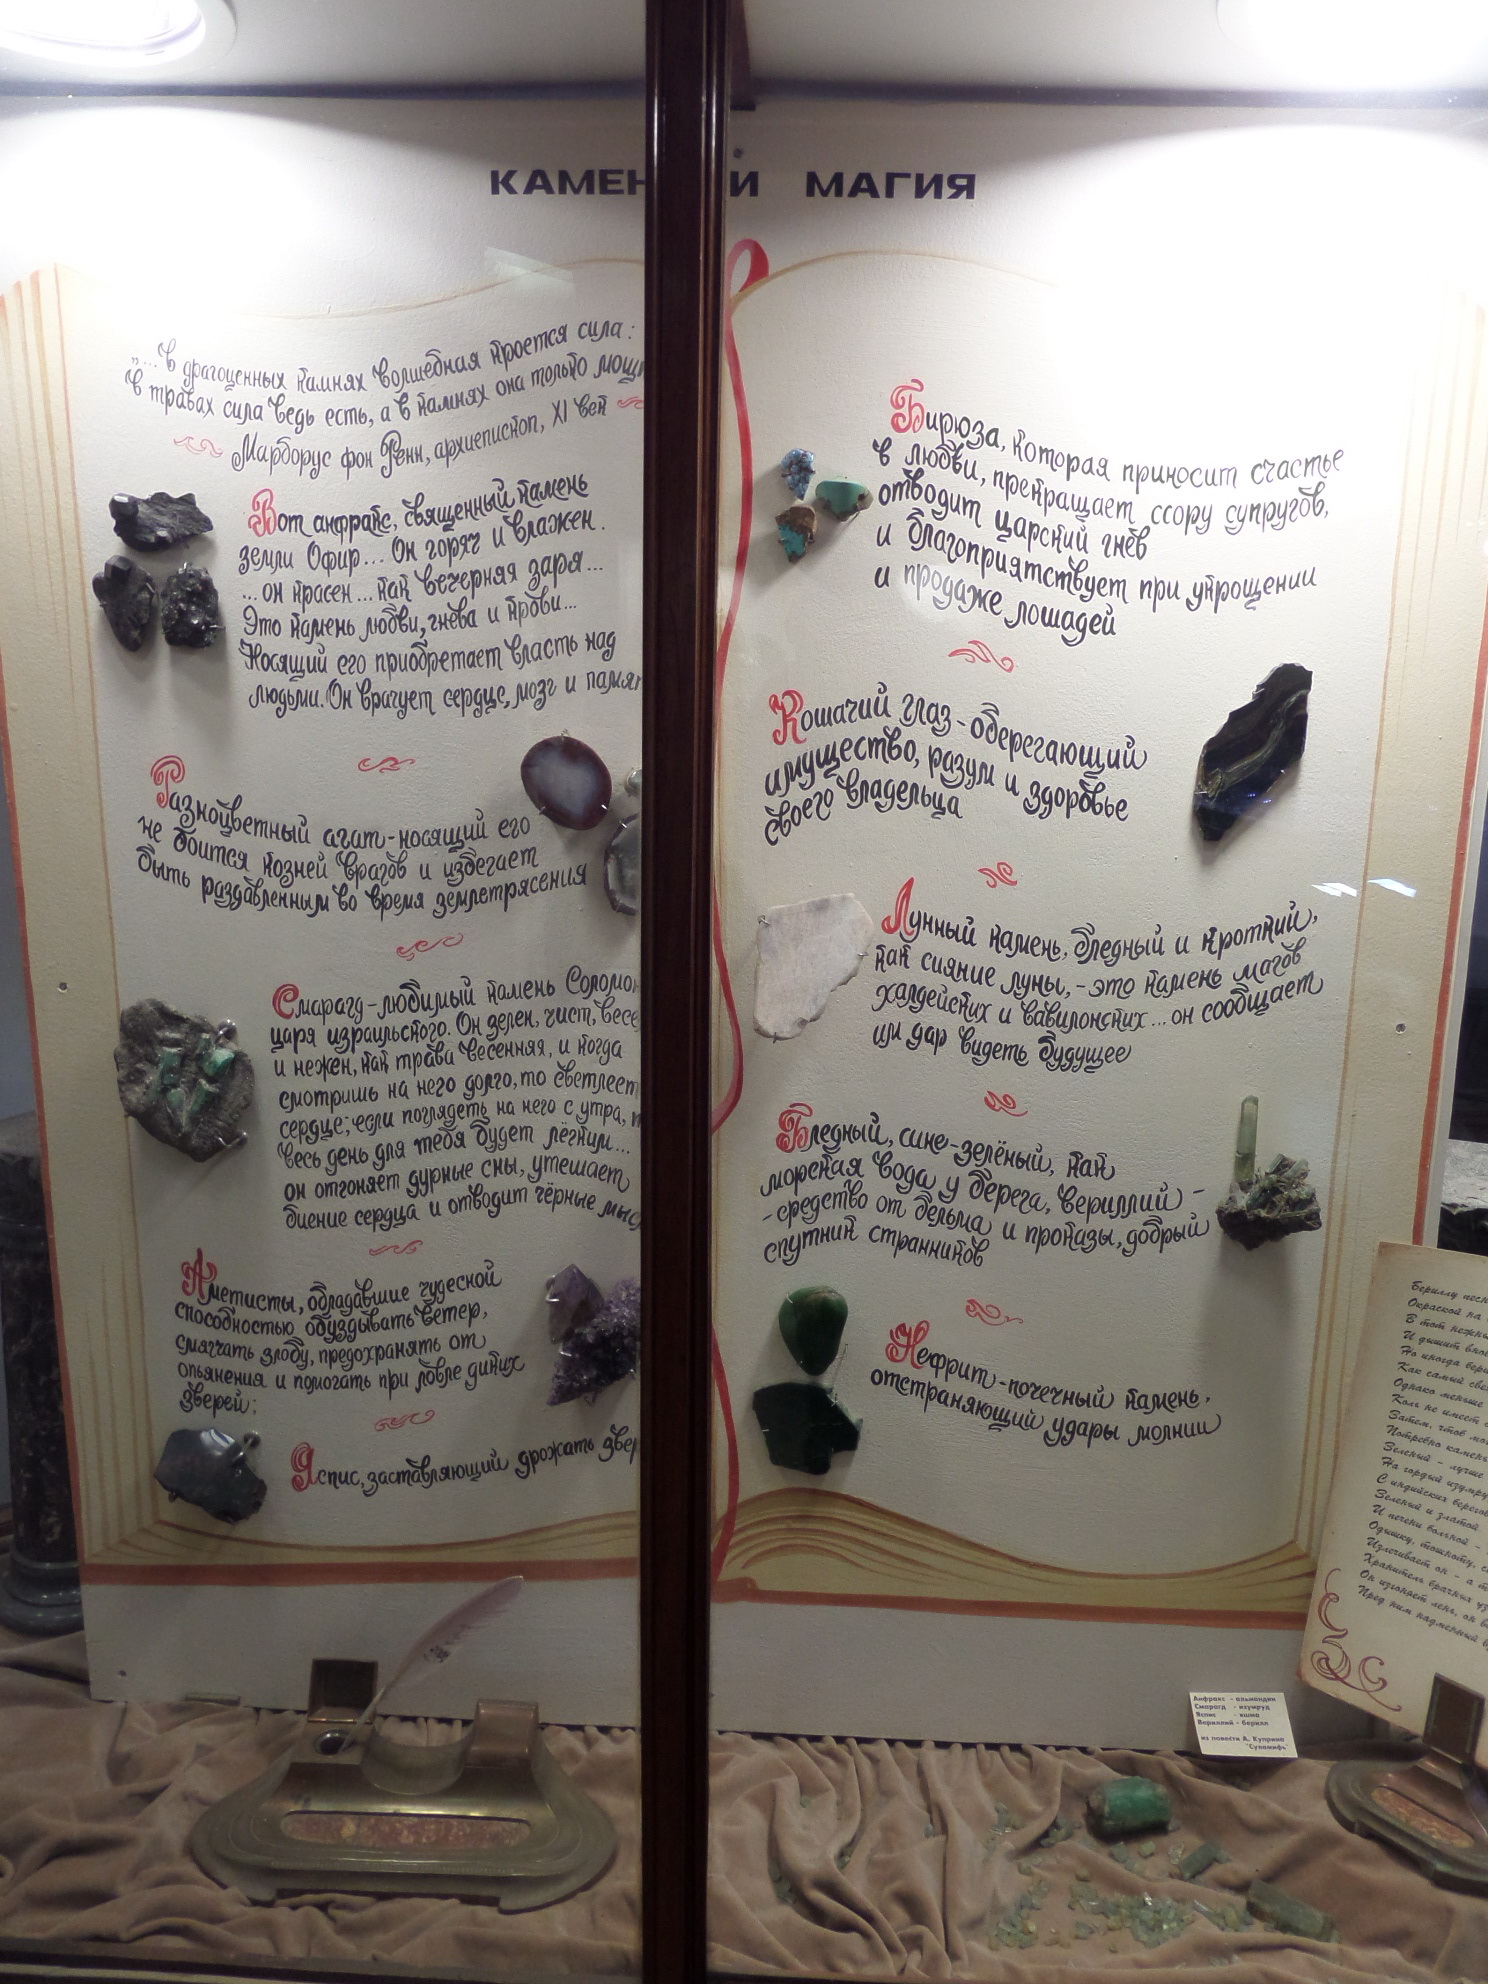 КАМЕН И МАГИЯ
„... в драгоценных камнях волшебная кроется сила:
в травах сила ведь есть, а в камнях она только мощн
Марборус фон Ренн, архиепископ, XI век
Вот анфракс, священный камень
земли Офир... Он горяч и влажен.
...он красен... как вечерняя заря...
Это камень любви, гнева и крови...
Носящий его приобретает власть над
людьми. Он врачует сердце, мозг и памят
Разноцветный агат-носящий его
не боится козней врагов и избегает
быть раздавленным во время землетрясения
Смарагд-любимый камень Соломон
царя израильского. Он зелен, чист, весе
и нежен, как трава весенняя, и когда
смотришь на него долго, то светлеет
сердце; если поглядеть на него с утра, т
весь день для тебя будет лёгким...
он отгоняет дурные сны, утешает
биение сердца и отводит чёрные мыс
Аметисты, обладавшие чудесной
способностью обуздывать ветер,
смягчать злобу, предохранять от
опьянения и помогать при ловле диких
зверей;
Яспис, заставляющий дрожать звер
Бирюза, которая приносит счастье
в любви, прекращает ссору супругов,
отводит царский гнев
и благоприятствует при укрощении
и продаже лошадей
Кошачий глаз-оберегающий
имущество, разум и здоровье
своего владельца
Лунный камень, бледный и кроткий,
как сияние луны,-это камень магов
халдейских и вавилонских... он сообщает
им дар видеть будущее
Бледный, сине-зелёный, как
морская вода у берега, вериллий -
-средство от бельма и проказы, добрый
спутник странников
Нефрит-почечный камень,
отстраняющий удары молнии
Анфракс - альмандин
Смарагд - изумруд
Яспис - яшма
Вериллий - берилл
из повести А. Куприна
"Суламифь"
Бериллу песн
Окраской на
В тот нежны
И дышит внов
Но иногда бери
Как самый све
Однако меньше
Коль не имеет
Затем, чтоб мо
Потребно камень
Зеленый - лучше
На гордый изумру
С индийских берегов
Зеленый и златой.
И печени больной -
Одышку, тошноту, с
Излечивает он - а т
Хранитель брачных уз
Он изгоняет лень, он в
Пред ним надменный в